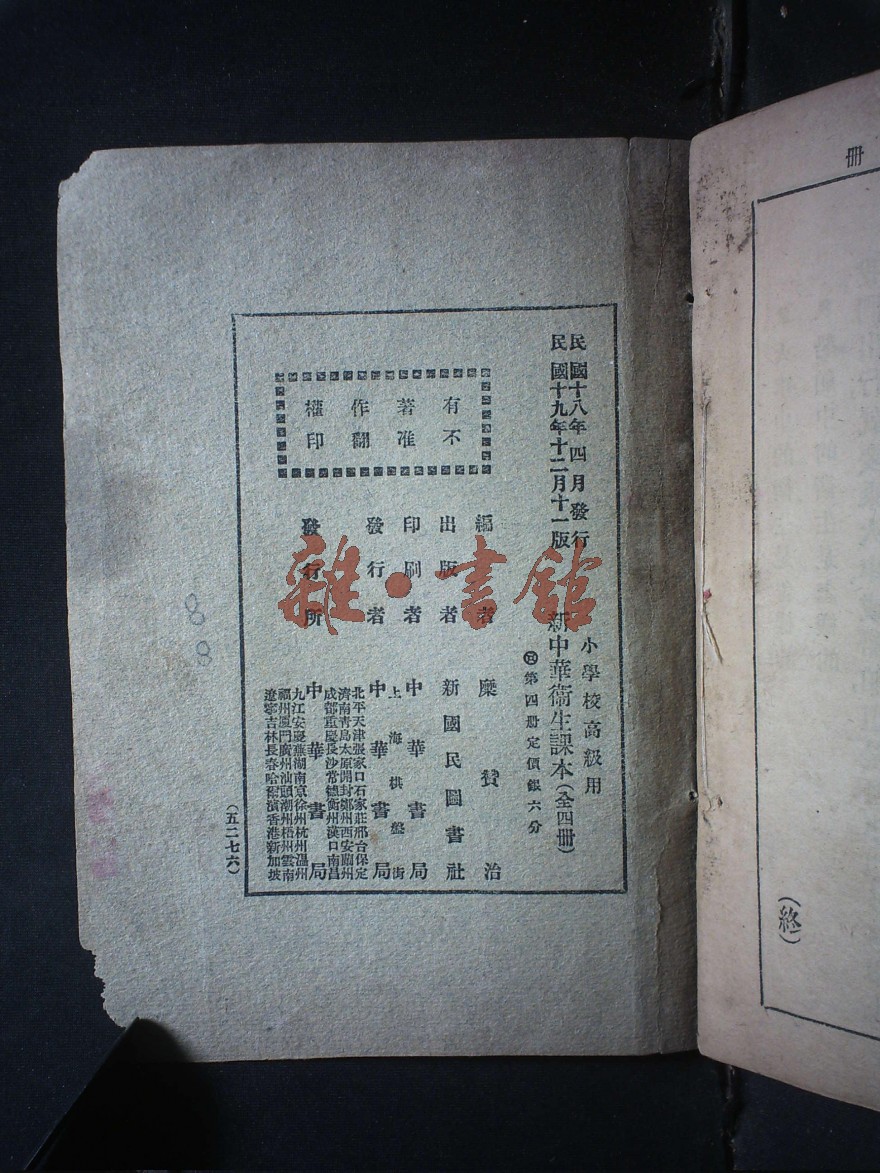 冊
(終)
民國十八年四月發行
民國十九年十二月十一版
小學校高級用
新中華衛生課本(全四冊)
第四册定價銀六分
有著作權
不准翻印
編者 糜贊治
出版者 新國民圖書社
印刷者 中華書局
上海棋盤街
發行者 中華書局
北平天津張家口石家莊邢台保定
濟南青島太原開封鄭州西安蘭州
成都重慶長沙常德衡州漢口南昌
發行所 中華書局
九江安慶蕪湖南京徐州杭州溫州
福州厦門廣州汕頭潮州梧州雲南
遼寧吉林長春哈爾濱香港新加坡
(五二七六)
88
雜·書館